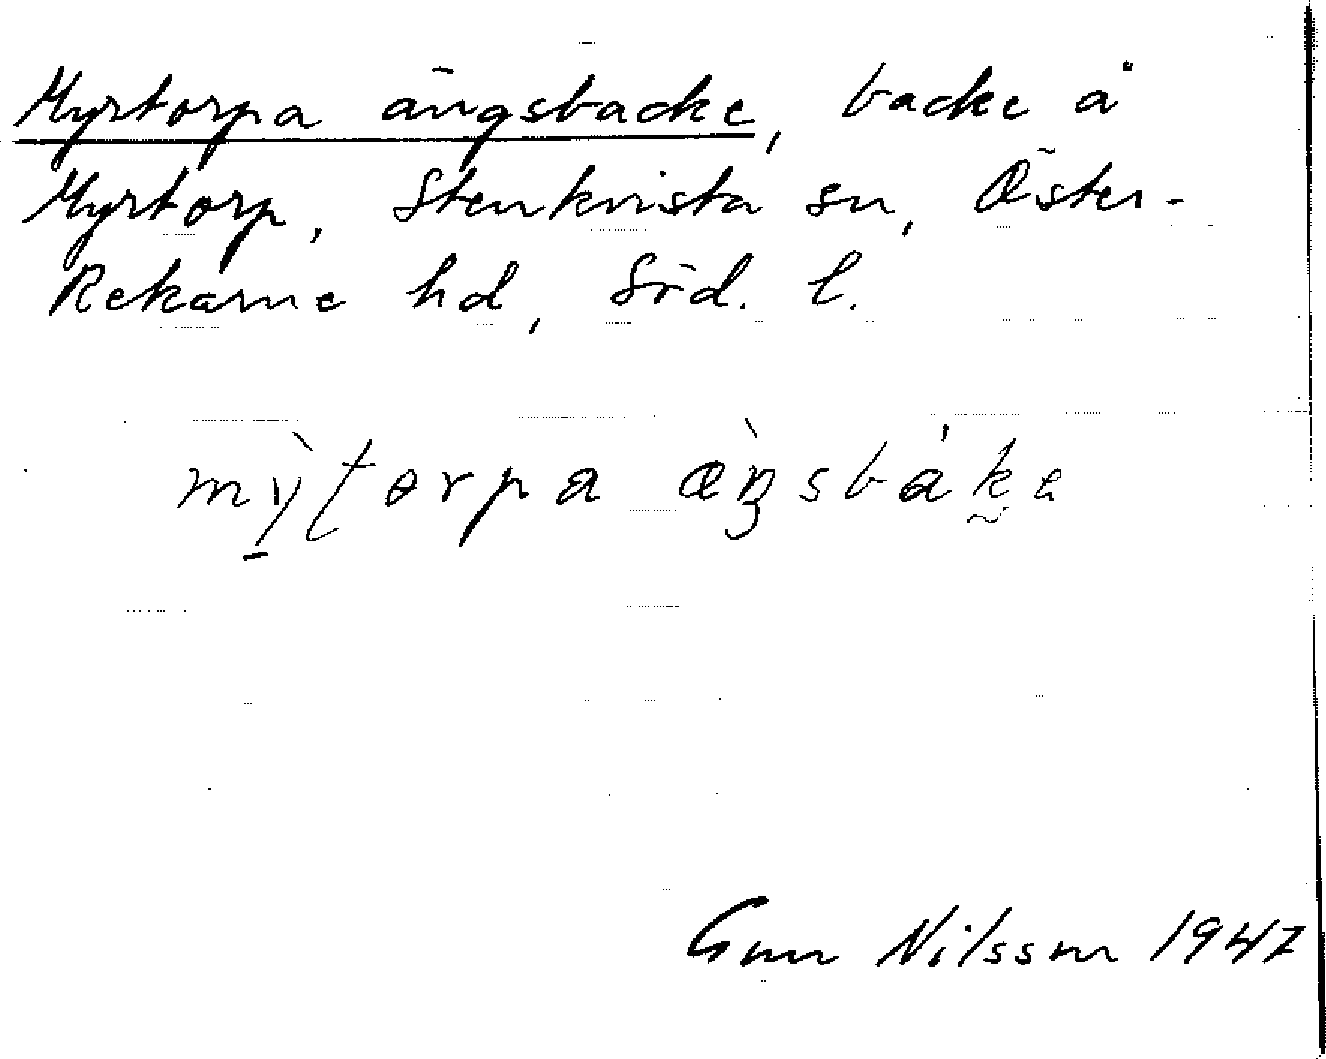 Myrtorpa ängsbacke, backe å
Myrtorp, Stenkvista sn, Öster-
Rekarne hd, Söd. l.
mỳʈɵrpa æ̀ŋsbák̰e
Gun Nilsson 1947